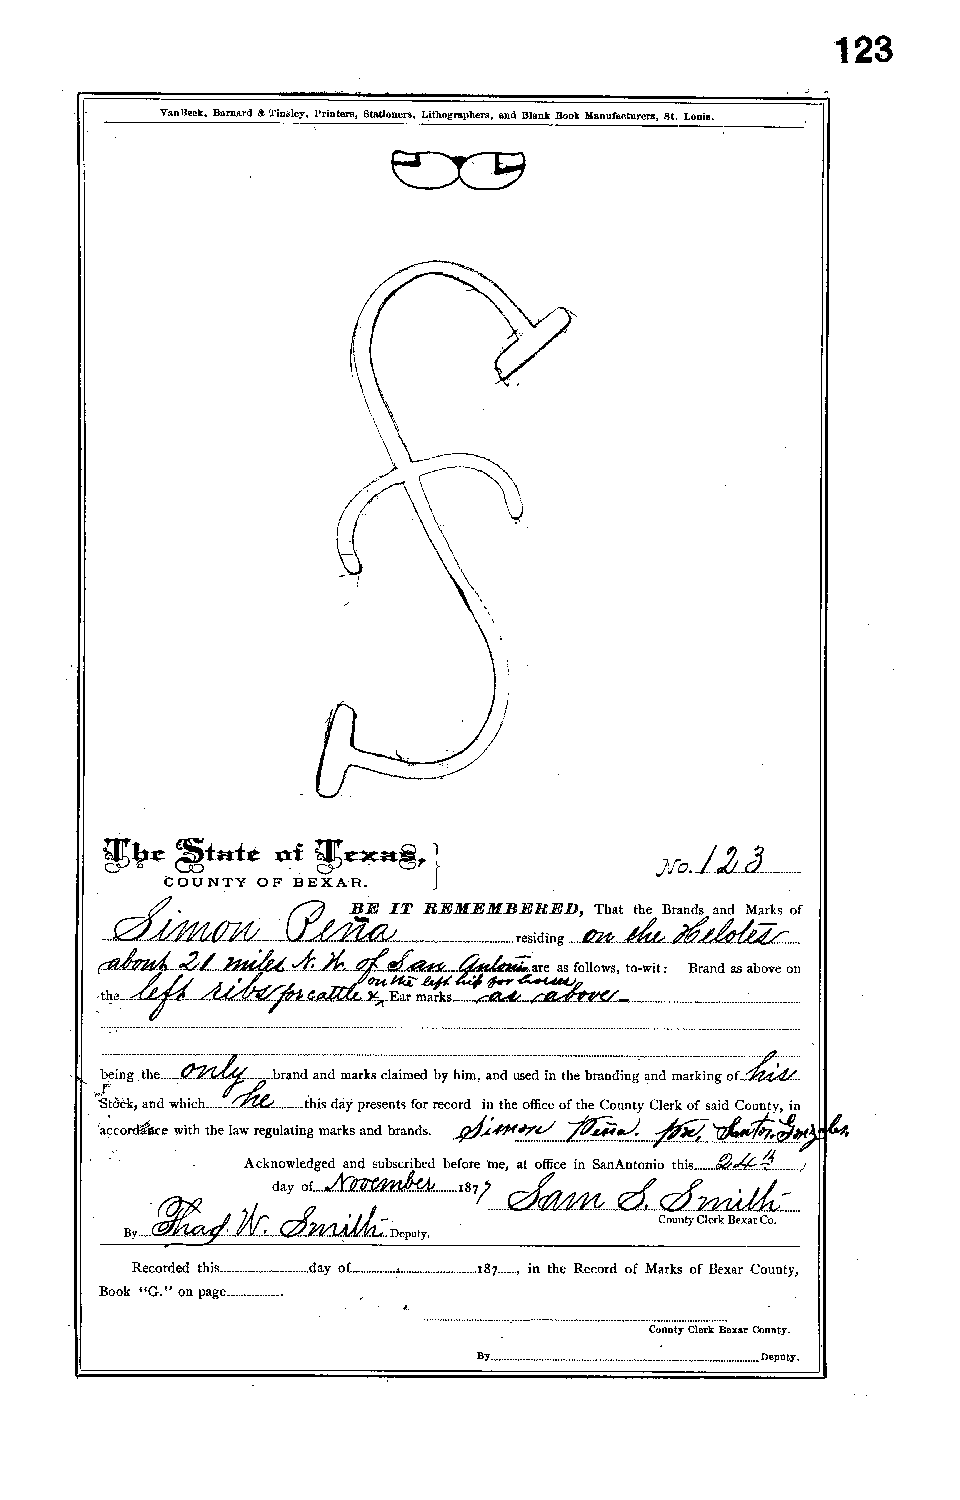 123
VanBeek, Barnard & Tinsley, Printers, Stationers, Lithographers, and Blank Book Manufacturers, St. Louis.
The State of Texas,
COUNTY OF BEXAR.
No. 123
BE IT REMEMBERED, That the Brands and Marks of
Simon Peña residing on the Helotes
about 21 miles N. W. of San Antonio are as follows, to-wit: Brand as above on
on the left hip for horses
the left ribs for cattle & Ear marks as above
being the only brand and marks claimed by him, and used in the branding and marking of his
Stock, and which he this day presents for record in the office of the County Clerk of said County, in
accordance with the law regulating marks and brands. Simon Peña. pr, Santos Gonzales,
Acknowledged and subscribed before me, at office in SanAntonio this 24th
day of November 1877 Sam S. Smith
County Clerk Bexar Co.
By Thad. W. Smith Deputy.
Recorded this day of 187 , in the Record of Marks of Bexar County,
Book "G." on page .
County Clerk Bexar County.
By Deputy.